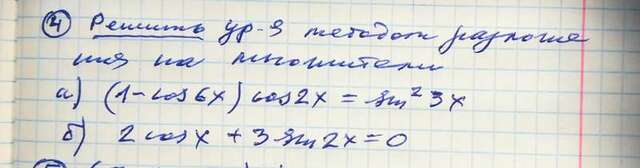 ④ Решить ур-я методом разложе
ния на множители
а) (1-cos6x) cos2x = sin²3x
б) 2cosx + 3sin2x=0